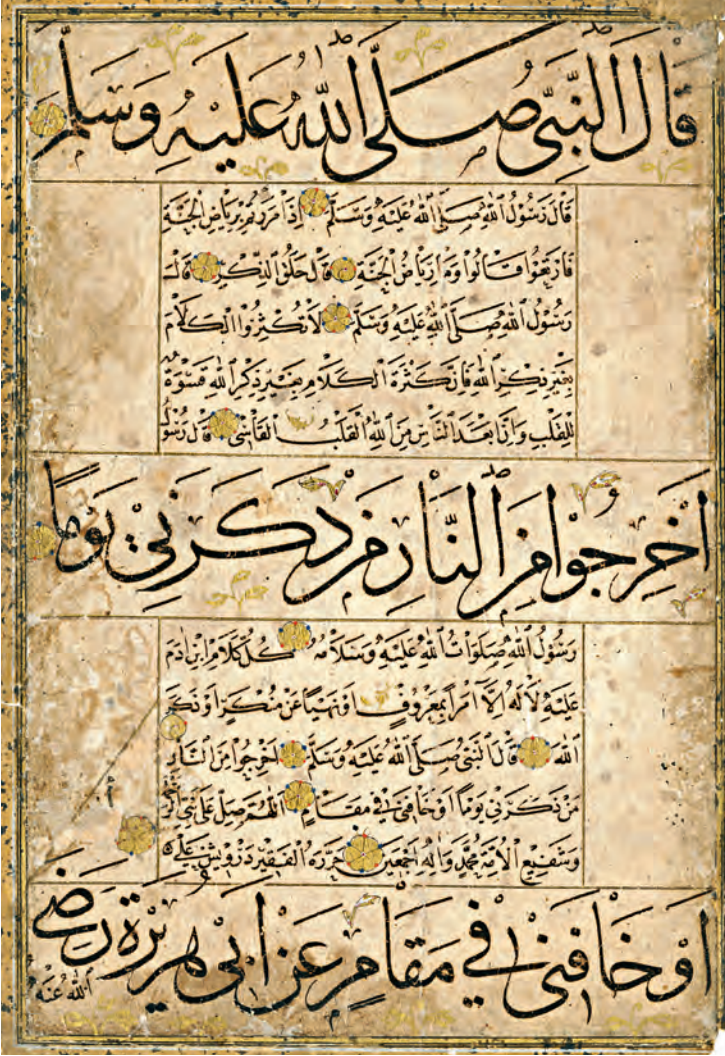 قَالَ النَّبِيُّ صَلَّى اللهُ عَلَيْهِ وَسَلَّمَ
قَالَ رَسُولُ اللهِ صَلَّى اللهُ عَلَيْهِ وَسَلَّمَ اِذَا مَرَرْتُمْ بِرِيَاضِ الْجَنَّةِ
فَارْتَعُوا قَالُوا وَمَا رِيَاضُ الْجَنَّةِ قَالَ حَلَقُ الذِّكْرِ قَالَ
رَسُولُ اللهِ صَلَّى اللهُ عَلَيْهِ وَسَلَّمَ لَا تُكْثِرُوا الْكَلَامَ
بِغَيْرِ ذِكْرِ اللهِ فَاِنَّ كَثْرَةَ الْكَلَامِ بِغَيْرِ ذِكْرِ اللهِ قَسْوَةٌ
لِلْقَلْبِ وَاِنَّ اَبْعَدَ النَّاسِ مِنَ اللهِ الْقَلْبُ الْقَاسِي قَالَ رَسُولُ
اَخْرِجُوا مِنَ النَّارِ مَنْ ذَكَرَنِي يَوْمًا
رَسُولُ اللهِ صَلَوَاتُ اللهِ عَلَيْهِ وَسَلَامُهُ كُلُّ كَلَامِ ابْنِ اٰدَمَ
عَلَيْهِ لَا لَهُ اِلَّا اَمْرًا بِمَعْرُوفٍ اَوْ نَهْيًا عَنْ مُنْكَرٍ اَوْ ذِكْرَ
اللهِ قَالَ النَّبِيُّ صَلَّى اللهُ عَلَيْهِ وَسَلَّمَ اَخْرِجُوا مِنَ النَّارِ
مَنْ ذَكَرَنِي يَوْمًا اَوْ خَافَنِي فِي مَقَامٍ اَللّٰهُمَّ صَلِّ عَلَى نَبِيِّ
وَشَفِيعِ الْاُمَّةِ مُحَمَّدٍ وَاٰلِهِ اَجْمَعِينَ حَرَّرَهُ الْفَقِيرُ دَرْوِيش عَلِي
اَوْ خَافَنِي فِي مَقَامٍ عَنْ اَبِي هُرَيْرَةَ رَضِيَ
اللهُ عَنْهُ